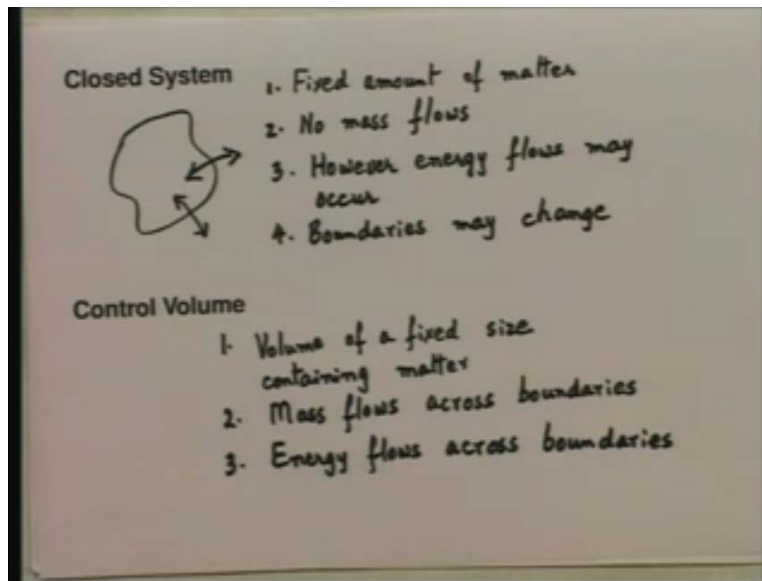 Closed System
1. Fixed amount of matter
2. No mass flows
3. However energy flows may
occur
4. Boundaries may change
Control Volume
1. Volume of a fixed size
containing matter
2. Mass flows across boundaries
3. Energy flows across boundaries